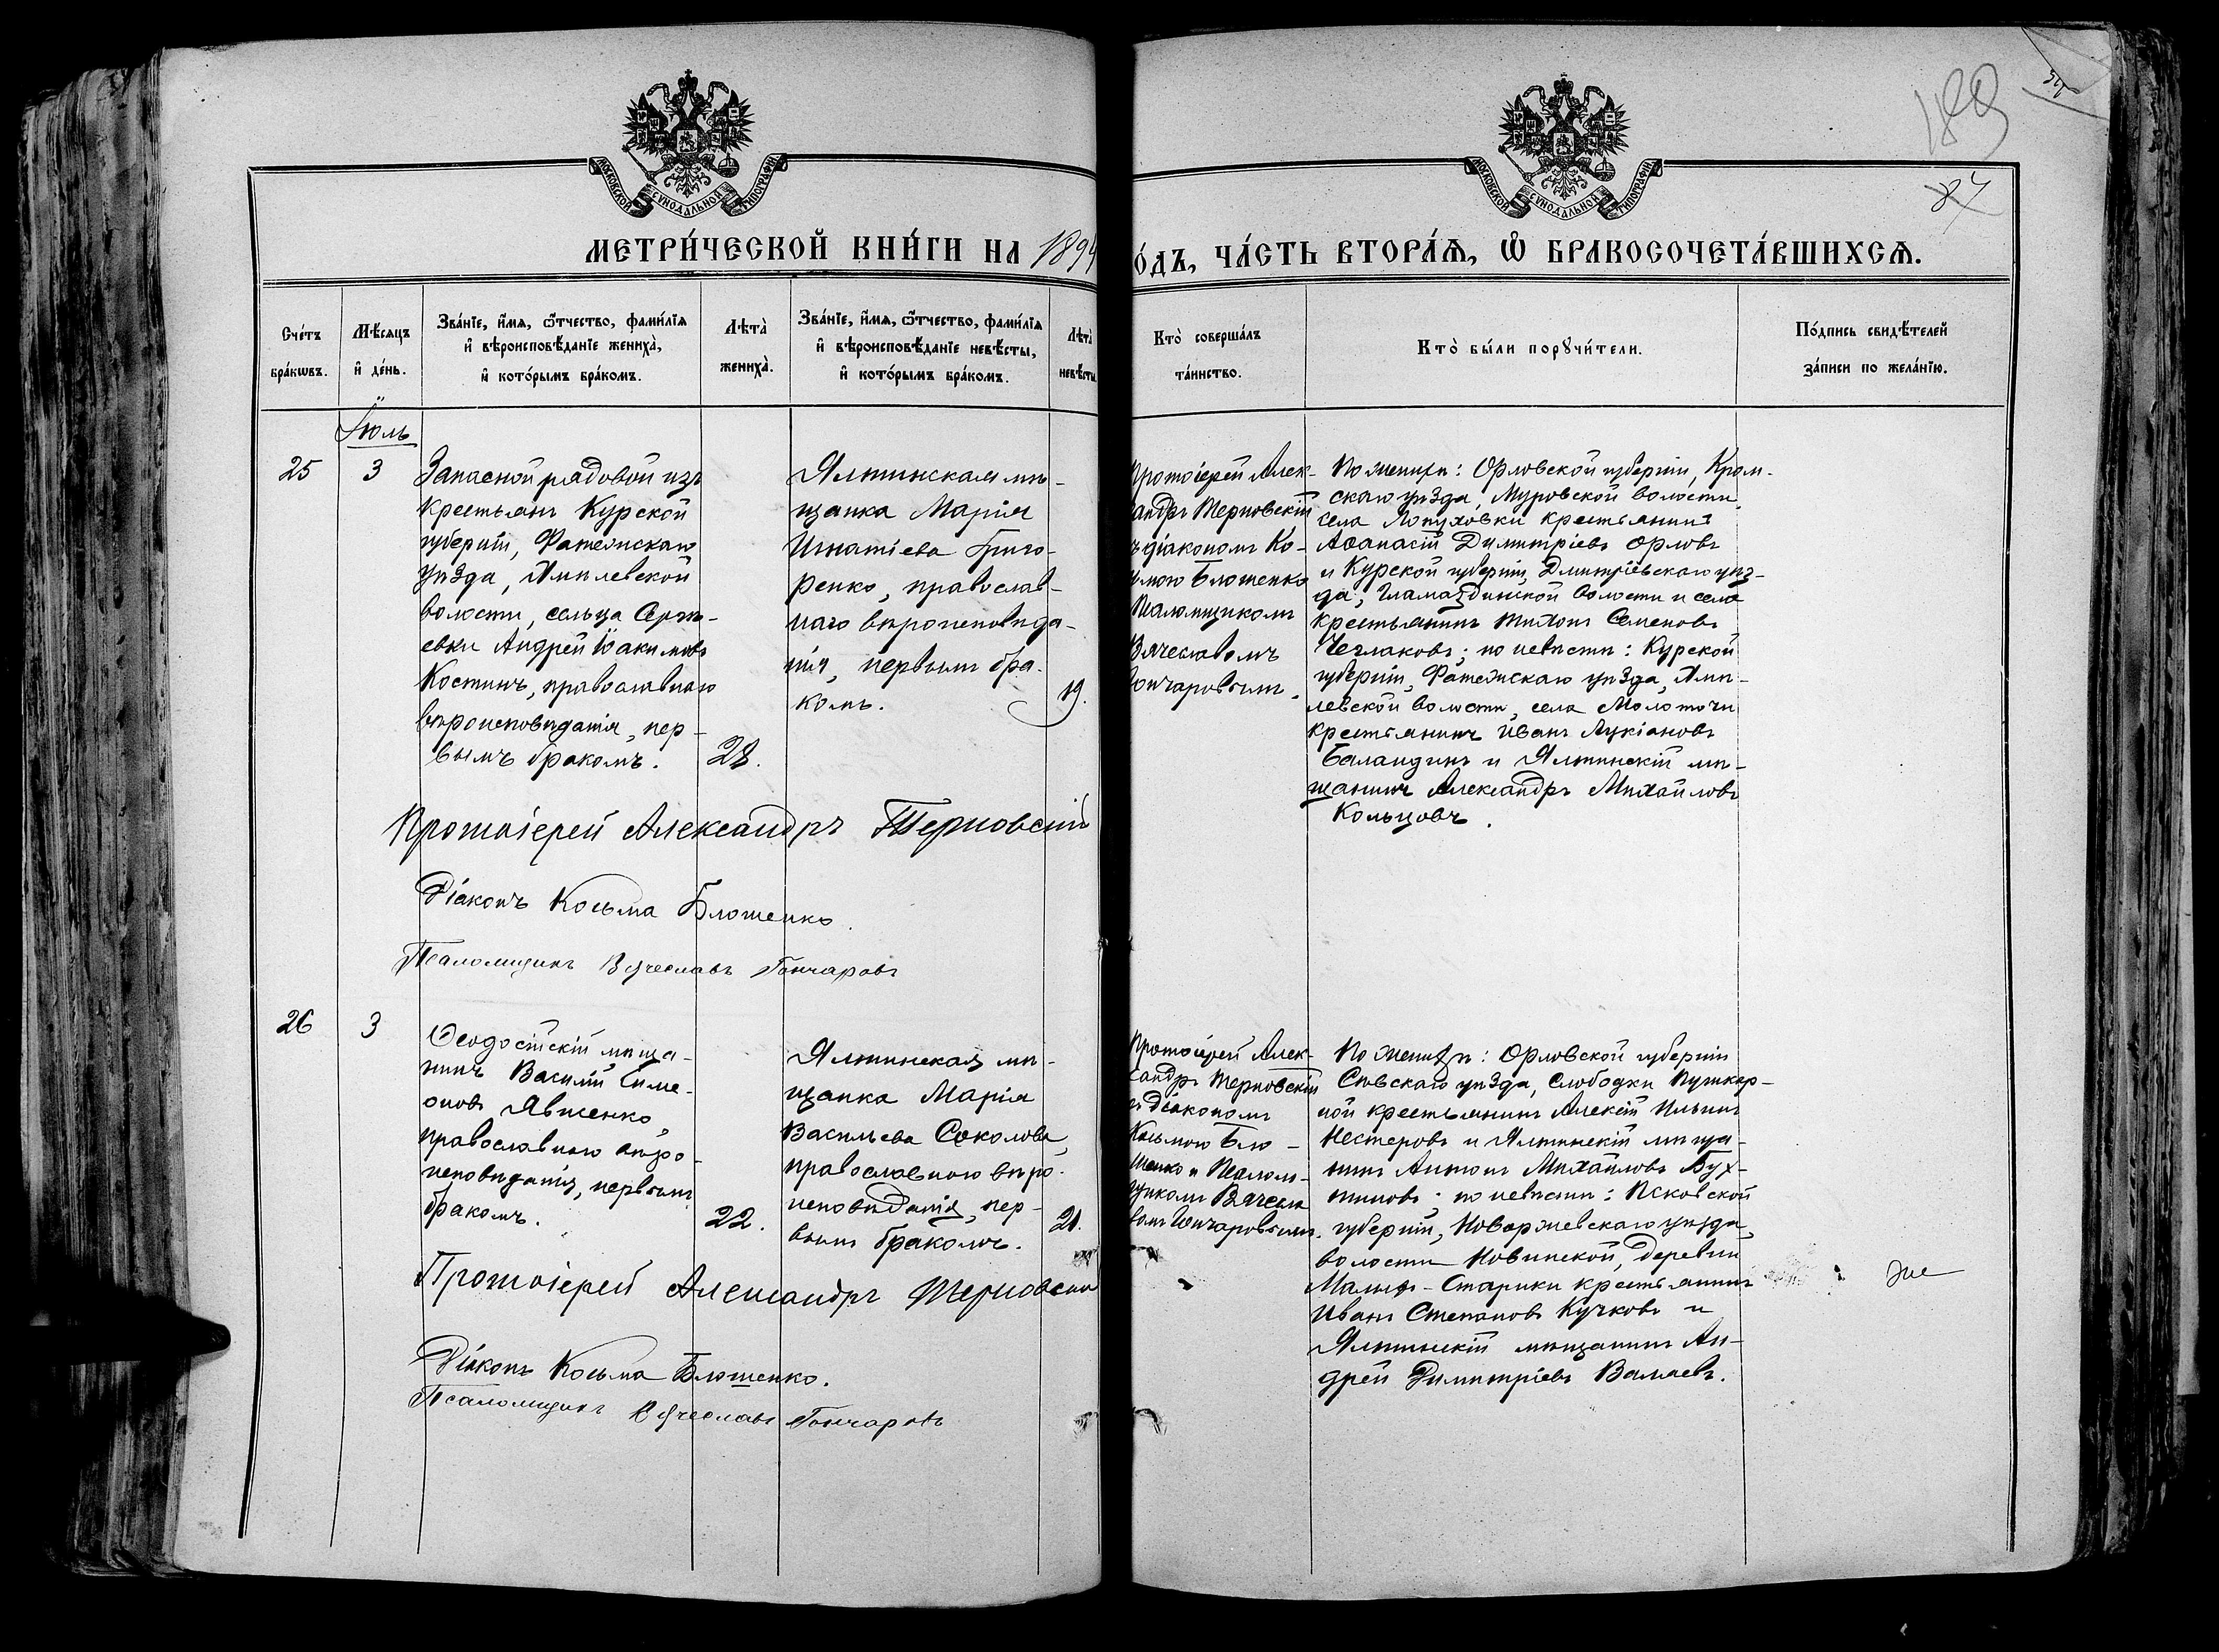 189
84
МОСКОВСКОЙ СѴНОДАЛЬНОЙ ТИПОГРАФІИ
МОСКОВСКОЙ СѴНОДАЛЬНОЙ ТИПОГРАФІИ
МЕТРИ́ЧЕСКОЙ КНИ́ГИ НА 1894
О́ДЪ, ЧА́СТЬ ВТОРА́Ѧ, Ѡ҆ БРАКОСОЧЕТА́ВШИХСѦ.
Сче́тъ
бра́кѡвъ.
Мѣ́сѧцъ
и҆ де́нь.
Зва́нїе, и҆́мѧ, ѻ҆́тчество, фами́лїѧ
и҆ вѣроисповѣ́данїе жениха̀,
и҆ кото́рымъ бра́комъ.
Лѣта̀
жениха̀.
Зва́нїе, и҆́мѧ, ѻ҆́тчество, фами́лїѧ
и҆ вѣроисповѣ́данїе невѣ́сты,
и҆ кото́рымъ бра́комъ.
Лѣта̀
невѣ́сты
Кто̀ соверша́лъ
та́инство.
Кто̀ бы́ли порꙋчи́тели.
По́дпись свидѣ́телей
за́писи по жела́нїю.
Іюль
25
3
Запасной рядовой изъ
крестьянъ Курской
губерніи, Фатежскаго
уѣзда, Нижнем
волости, сельца Сергѣ-
евки Андрей Іоакимовъ
Костинъ, православнаго
вѣроисповѣданія, пер-
вымъ бракомъ.
28.
Ялтинская мѣ-
щанка Марія
Игнатіева Григо-
ренко, православ-
наго вѣроисповѣда-
нія, первымъ бра-
комъ.
19.
Протоіерей Алек-
сандръ Терновскій
съ діакономъ Ко-
зьмою Блошенко
Псаломщикомъ
Вячеславомъ
Гончаровымъ.
По женихѣ: Орловской губерніи, Кром-
скаго уѣзда, Муровской волости
села Лопуховки крестьянинъ
Аѳанасій Димитріевъ Орловъ
и Курской губерніи, Дмитріевскаго уѣз-
да, Гламаздинской волости и села
крестьянинъ Тихонъ Семеновъ
Чеглаковъ; по невѣстѣ: Курской
губерніи, Фатежскаго уѣзда,
левской волости, села Молотычи
крестьянинъ Иванъ Лукіановъ
Баландинъ и Ялтинскій мѣ-
щанинъ Александръ Михайловъ
Кольцовъ.
Протоіерей Александръ Терновскій
Діаконъ Косьма Блошенко.
Псаломщикъ Вячеславъ Гончаровъ
26
3
Ѳеодосійскій мѣща-
нинъ Василій Симе-
оновъ Явшенко,
православнаго вѣро-
исповѣданія, первымъ
бракомъ.
22.
Ялтинская мѣ-
щанка Марія
Васильева Соколова,
православнаго вѣро-
исповѣданія, пер-
вымъ бракомъ.
21.
Протоіерей Алек-
сандръ Терновскій
съ діакономъ
Косьмою Бло-
шенко и Псалом-
щикомъ Вячесла
вомъ Гончаровымъ.
По женихѣ: Орловской губерніи
Сѣвскаго уѣзда, Слободки Пушкар-
ной крестьянинъ Алексій Ильинъ
Нестеровъ и Ялтинскій мѣща-
нинъ Антонъ Михайловъ Бух-
тиновъ; по невѣстѣ: Псковской
губерніи, Новоржевскаго уѣзда,
волости Новинской, деревни
Малые-Старики крестьянинъ
Иванъ Степановъ Кучковъ и
Ялтинскій мѣщанинъ Ан-
дрей Димитріевъ Валаевъ.
Протоіерей Александръ Терновскій
Діаконъ Косьма Блошенко.
Псаломщикъ Вячеславъ Гончаровъ